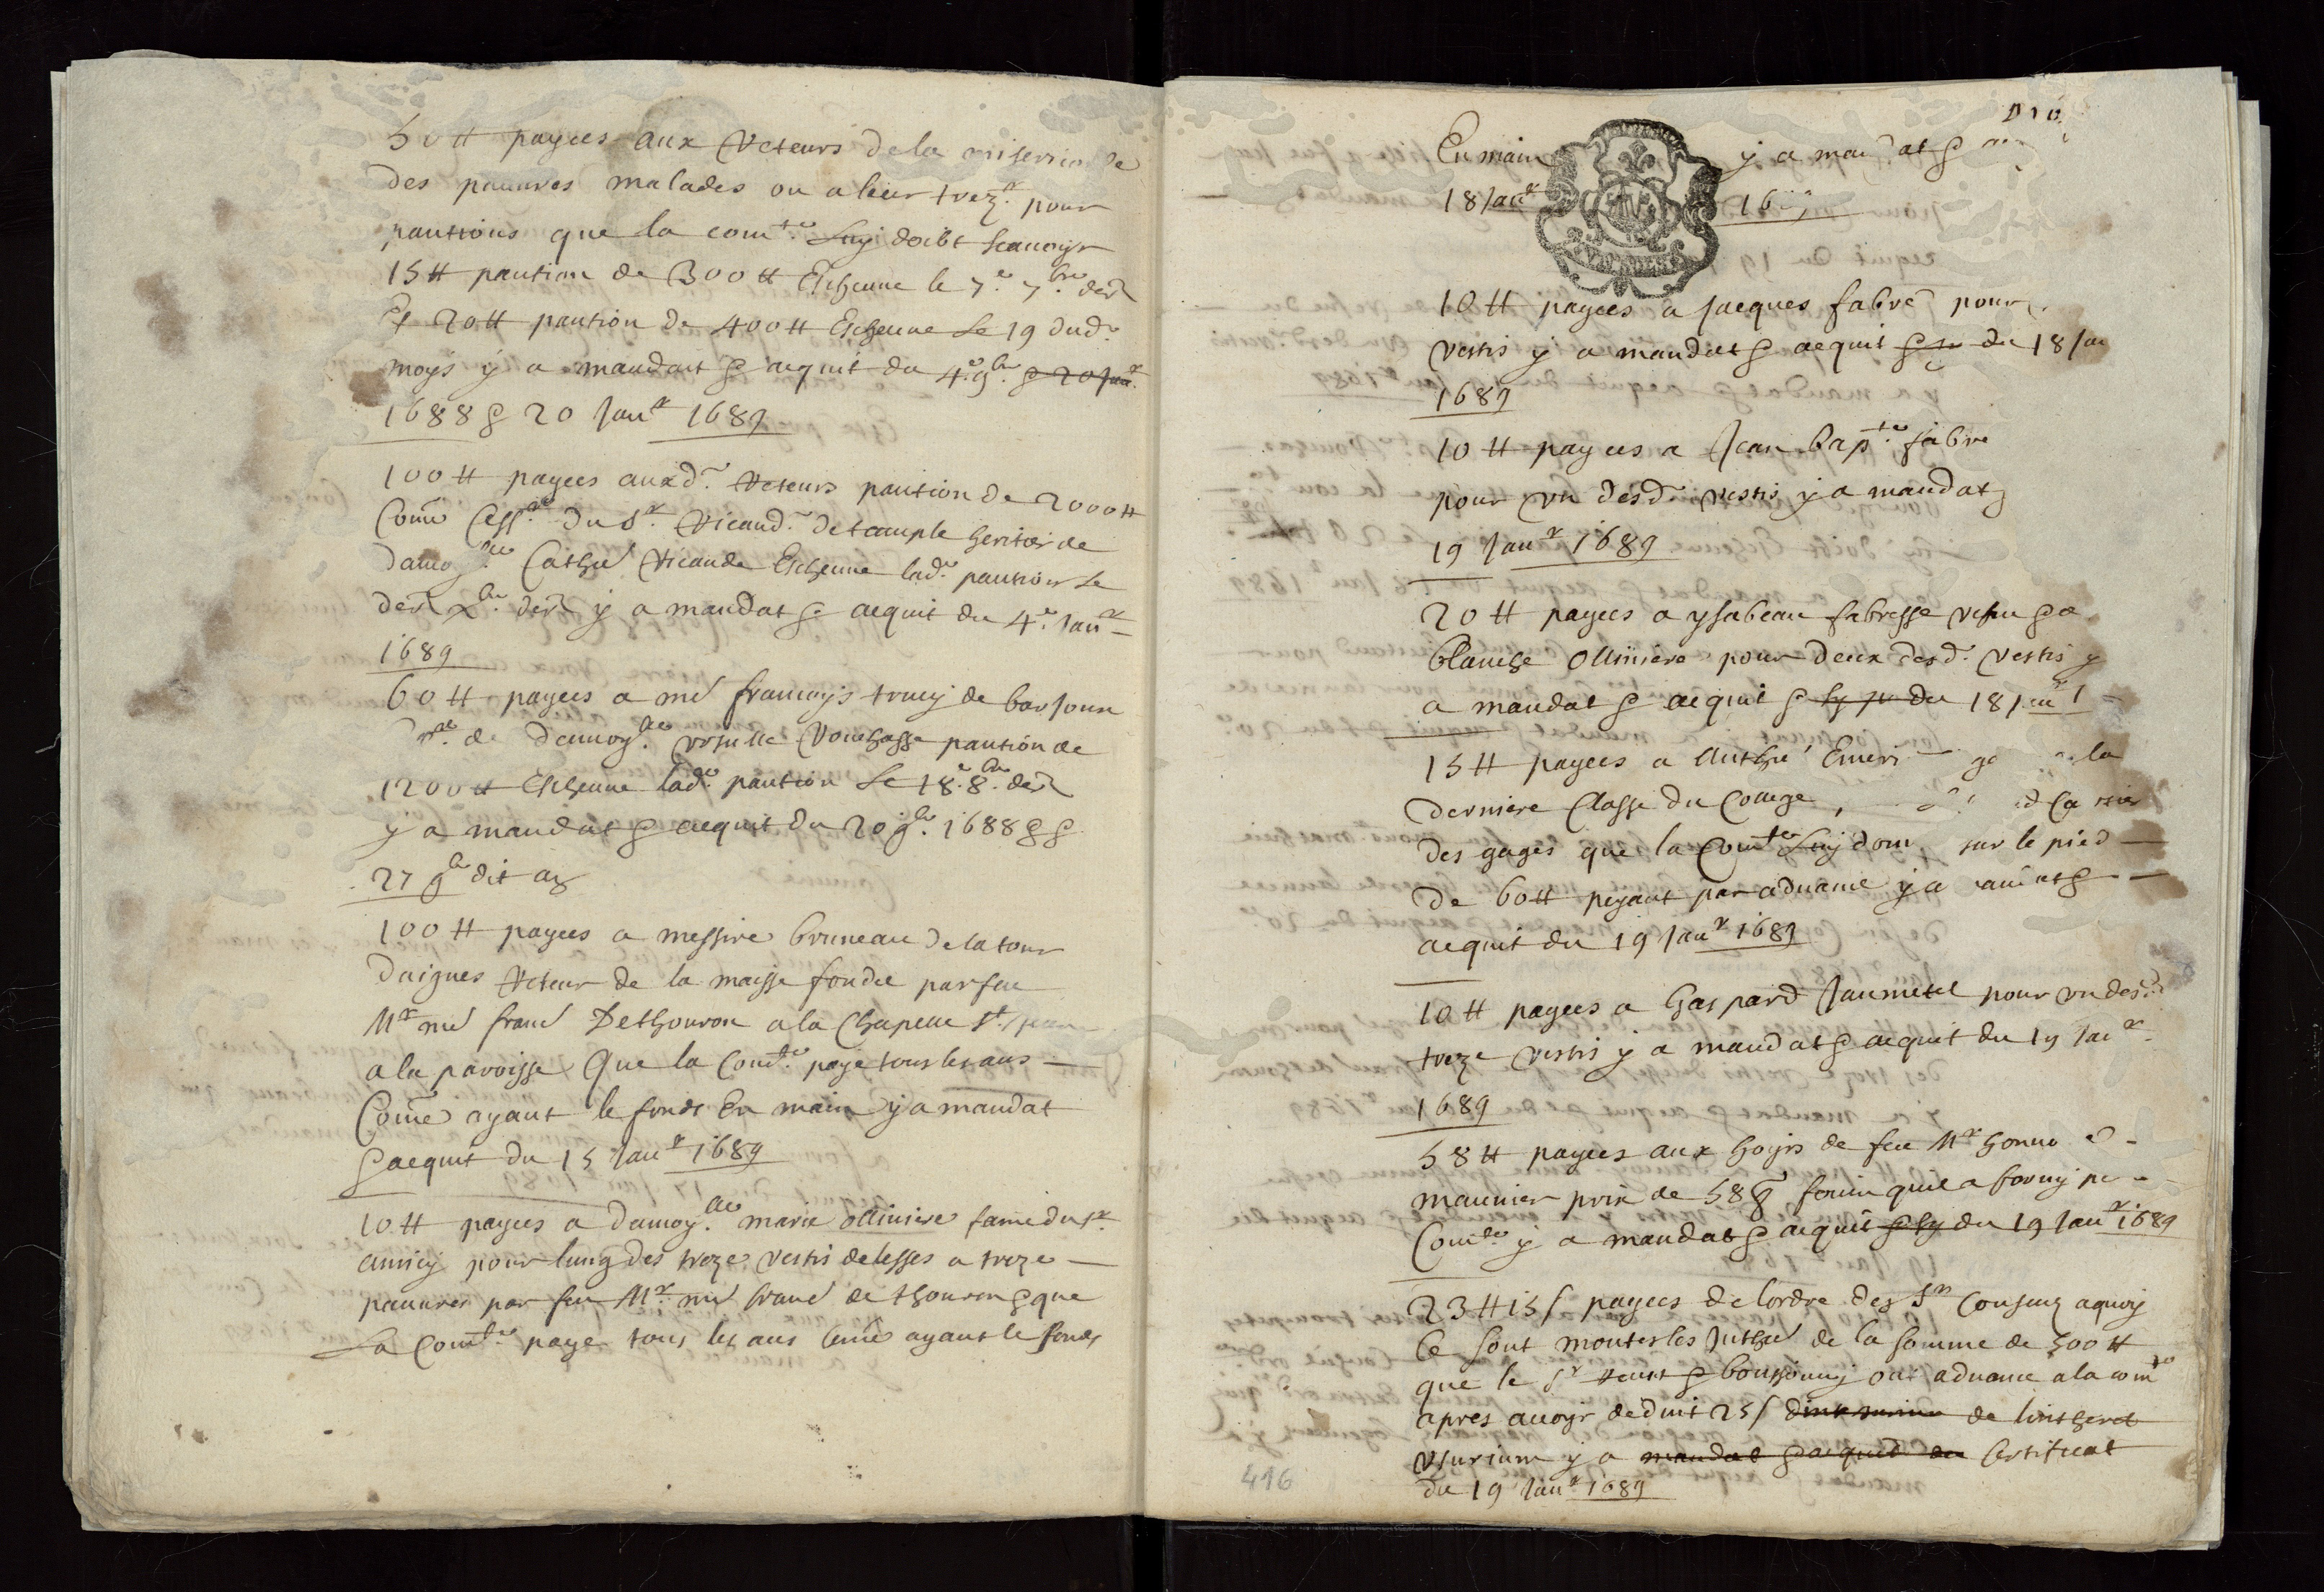 payees aux Recteurs de la misericorde
des pauures malades ou a leur trez.r pour
pantions que la com.te Luy doibt scauoyr
15 ₶ pantion de 300 ₶ Escheue le 7.e 7.bre der
Et 20 ₶ pantion de 400 ₶ Escheue Le 19 dud.
moys y a mandat & acquit du 4.e 9.bre & 20 Jan.r
1688 & 20 Jan.r 1689
100 ₶ payees auxd. Recteurs pantion de 2000 ₶
Comē Cess.re du S.r Vicaud. heritier de
damoy.lle Cathē Vicaude Escheue lad.e pantion Le
der x.bre der y a mandat & acquit du 4.e Jan.r
1689
60 ₶ payees a mē francoys trucy de barjoux
de damoy.lle Ursulle pantion de
1200 ₶ Escheue lad.e pantion Le 18.e 8.bre der
y a mandat & acquit du 20 9.bre 1688 &
27 9.bre dit an
100 ₶ payees a messire bruneau de la tour
daigues Recteur de la messe fondee par feu
M.r mē franc Dethouron a la Chapelle S.t Jean
a la paroisse Que la Com.te paye tous les ans
Comē ayant le fonds En main y a mandat
& acquit du 15 Jan.r 1689
10 ₶ payees a damoy.lle marie olliuiere famē du S.r
amicy pour lung des treze vestis delesses a treze
pauures par feu M.r mē franc de thouron & que
La Com.te paye tous les ans Comē ayant le fonds
En main y a mandat &
18 Jan.r
10 ₶ payees a Jacques fabre pour
vestis y a mandat & acquit du 18 Jan
1689
10 ₶ payees a Jean bap.te fabre
pour un desd. vestis y a mandat &
19 Jan.r 1689
20 ₶ payees a ysabeau fabresse vefue & a
blanche Olliuiere pour deux desd. vestis y
a mandat & acquit & du 18 Jan.r
15 ₶ payees a Anthē Emeri la
derniere Classe du College
des gages que la Com.te Luy donne sur le pied
de 60 ₶ payant par aduance y a mandat &
acquit du 19 Jan.r 1689
10 ₶ payees a Gaspard Jaumetel pour un desd.
treze vestis y a mandat & acquit du 19 Jan.r
1689
58 ₶ payees aux hoyrs de feu M.r honno
maunier prix de 58 q foin quil a forny
Com.te y a mandat & acquit du 19 Jan.r 1689
23 ₶ 15 s payees de lordre des S.rs Consuls a quoy
Ce sont montes les Inthē de la somme de 500 ₶
que le S.r & ont aduance a la com.te
apres auoyr deduit 25 s de lintheret
y a mandat & acquit du Certificat
du 19 Jan.r 1689
416